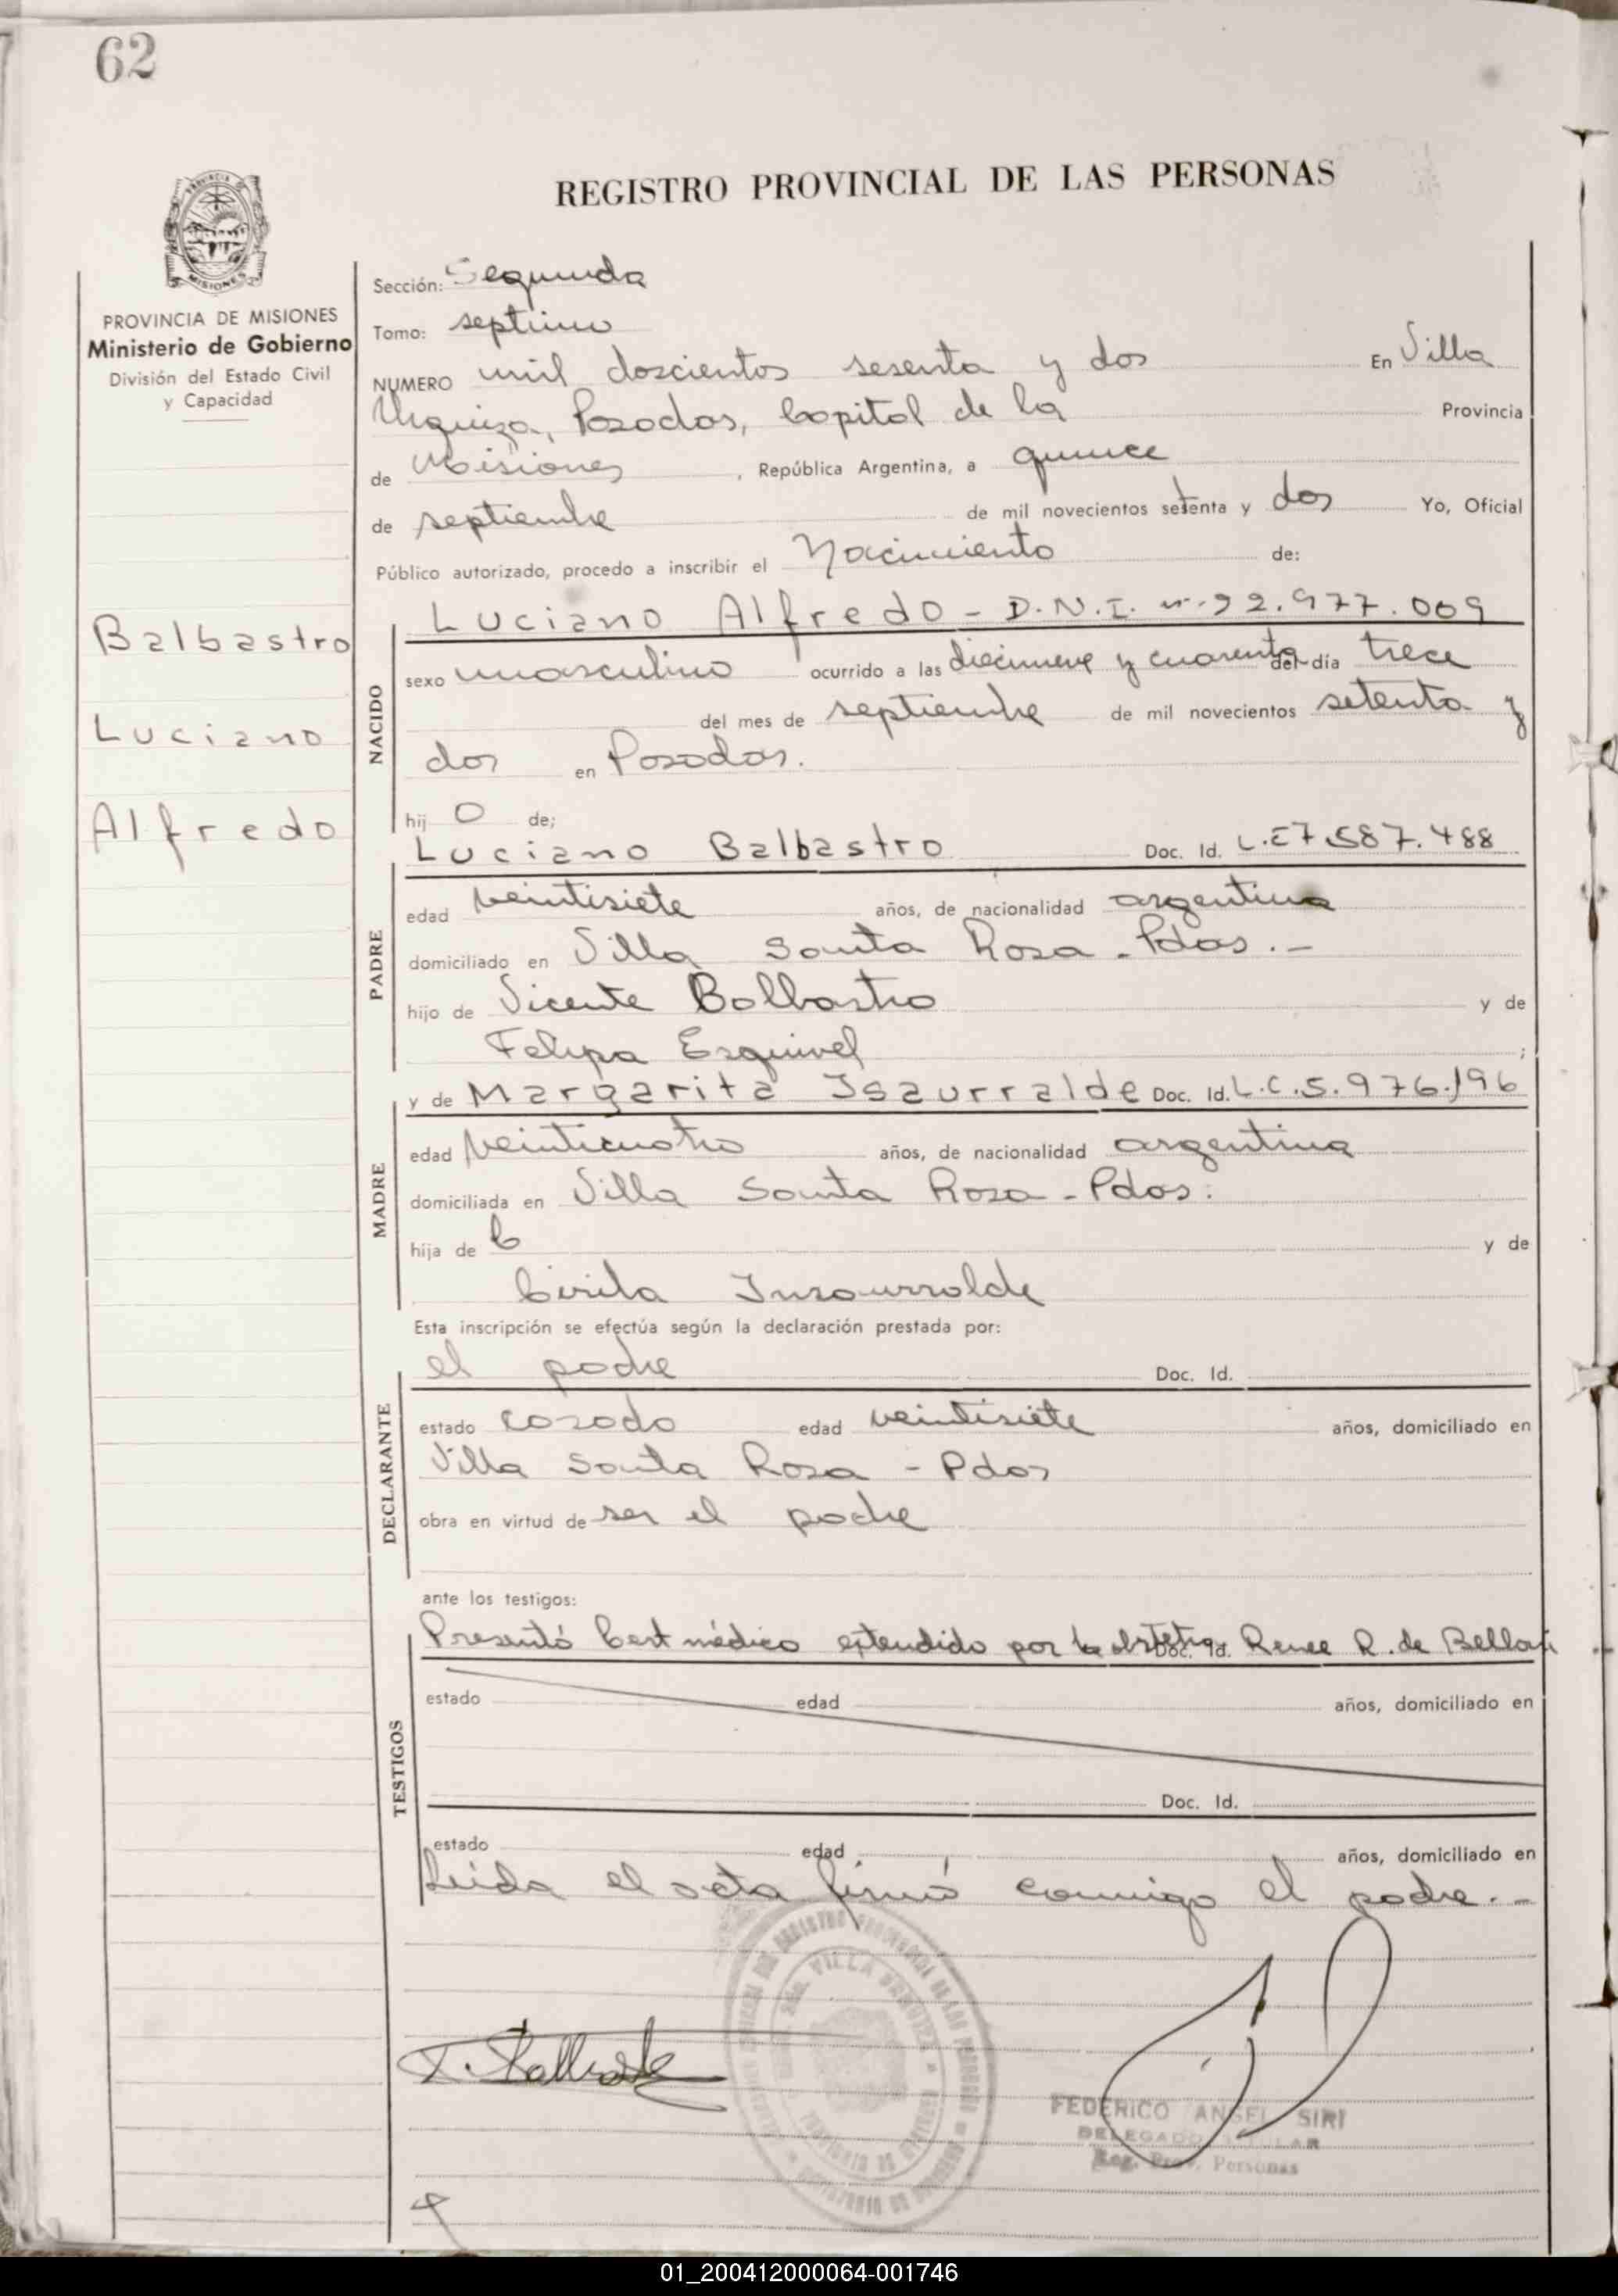 62
REGISTRO PROVINCIAL DE LAS PERSONAS
MISIONES
PROVINCIA DE MISIONES
Ministerio de Gobierno
División del Estado Civil
y Capacidad
Balbastro
Luciano
Alfredo
Sección: Segunda
Tomo: septimo
NUMERO mil doscientos sesenta y dos En Villa
Urquiza, Posadas, Capital de la Provincia
de Misiones, República Argentina, a quince
de septiembre de mil novecientos setenta y dos Yo, Oficial
Público autorizado, procedo a inscribir el Nacimiento de:
Luciano Alfredo - D.N.I. nº 22.977.009
NACIDO
sexo masculino ocurrido a las diecinueve y cuarenta del día trece
del mes de septiembre de mil novecientos setenta y
dos en Posadas.
hij o de;
Luciano Balbastro Doc. Id. L.E 7.587.488
PADRE
edad veintisiete años, de nacionalidad argentina
domiciliado en Villa Santa Rosa - Pdas. -
hijo de Vicente Balbastro y de
Felipa Esquivel ;
y de Margarita Isaurralde Doc. Id. L.C. 5.976.196
MADRE
edad veinticuatro años, de nacionalidad argentina
domiciliada en Villa Santa Rosa - Pdas.
hija de C y de
Cirila Insaurralde
Esta inscripción se efectúa según la declaración prestada por:
el padre Doc. Id.
DECLARANTE
estado casado edad veintisiete años, domiciliado en
Villa Santa Rosa - Pdas
obra en virtud de ser el padre
ante los testigos:
Presentó Cert médico extendido por la obstetra Doc. Id. Renee R. de
TESTIGOS
estado edad años, domiciliado en
Doc. Id.
estado edad años, domiciliado en
Leida el acta firmó conmigo el padre. -
FEDERICO ANGEL SIRI
DELEGADO TITULAR
Reg. Prov. Personas
01_200412000064-001746